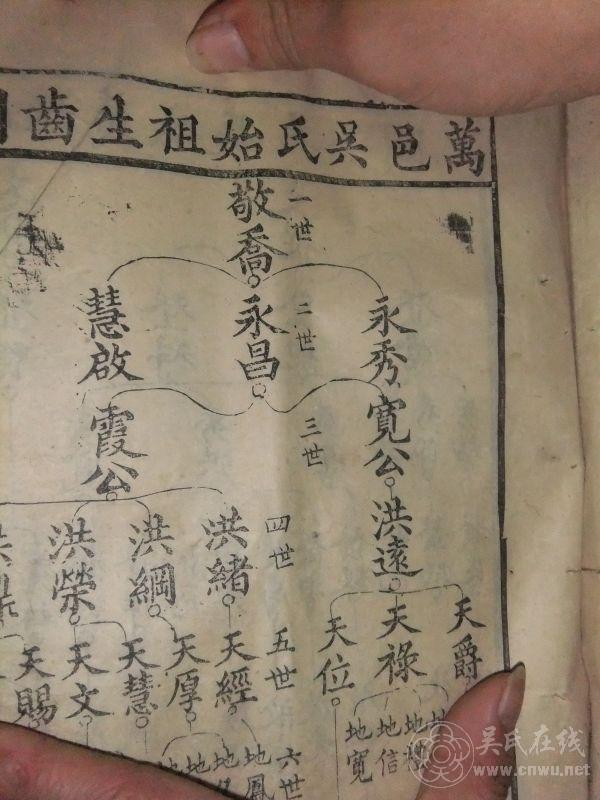 萬邑吳氏始祖生齒
一世
敬喬
二世
永秀
永昌
慧啟
三世
寬公
霞公
四世
洪遠
洪緒
洪綱
洪榮
五世
天爵
天祿
天位
天經
天厚
天慧
天文
天賜
六世
地
地
地信
地寬
地鳳
地
地
地
吴氏在线
www.cnwu.net